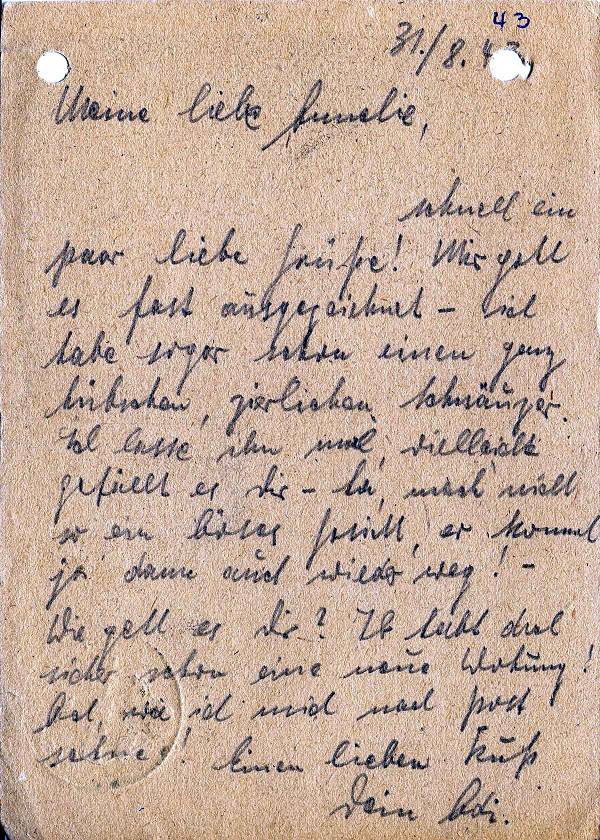 43
31./8. 43,
Meine liebe Annelie,
schnell ein
paar liebe Grüße! Mir geht
es fast ausgezeichnet – ich
habe sogar schon einen ganz
hübschen, zierlichen Schnäuzer.
Ich lasse ihn mal, vielleicht
gefällt es Dir – Du, mach nicht
so ein böses Gesicht, er kommt
ja dann auch wieder weg! –
Wie geht es Dir? Ihr habt doch
sicher schon eine neue Wohnung!
Ach, wie ich mich nach Post
sehne! Einen lieben Kuß
Dein Adi.